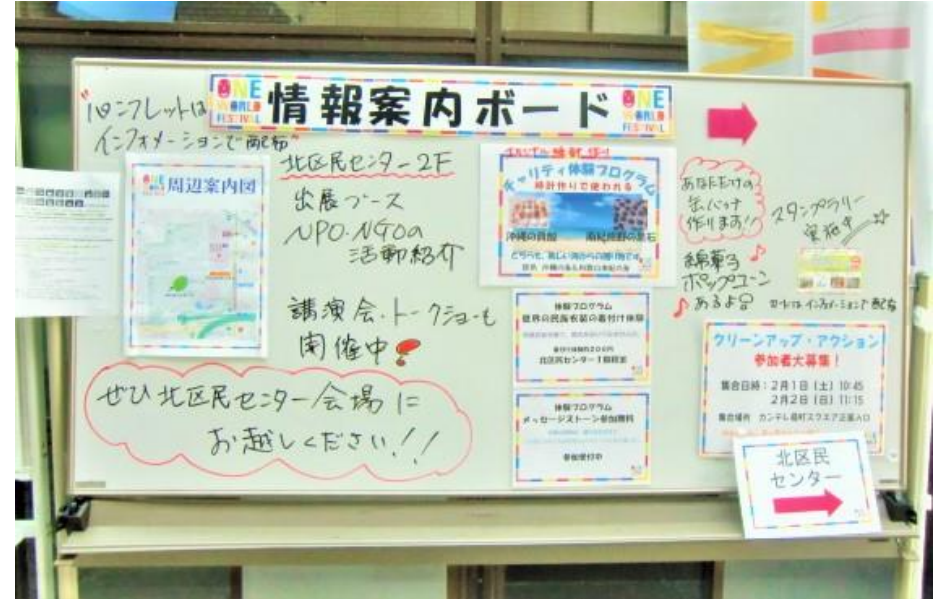 ONE WORLD FESTIVAL
情報案内ボード
ONE WORLD FESTIVAL
"パンフレットは
インフォメーションで配布"
周辺案内図
北区民センター2F
出展ブース
NPO・NGOの
活動紹介
講演会・トークショーも
開催中
ぜひ北区民センター会場に
お越しください!!
チャリティ体験プログラム
時計作りで使われる
沖縄の貝殻
体験プログラム
世界の民族衣装の着付け体験
北区民センター1階
体験プログラム
メッセージストーン参加無料
参加受付中
あなただけの
缶バッチ
作ります!!
綿菓子
ポップコーン
あるよ
スタンプラリー
実施中
カードはインフォメーションで配布
クリーンアップ・アクション
参加者大募集!
集合日時:2月1日(土)10:45
2月2日(日)11:15
集合場所 カンテレ扇町スクエア正面入口
北区民
センター